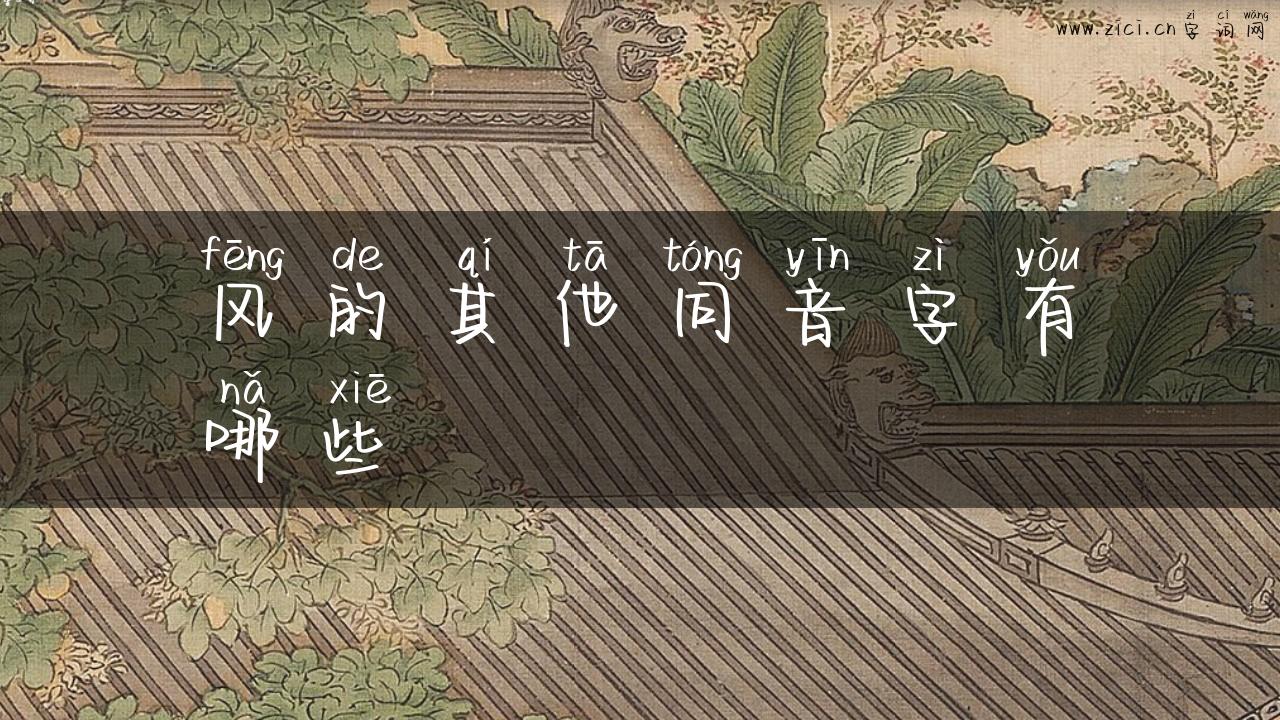 zì cí wǎng
www.zici.cn 字词网
fēng de qí tā tóng yīn zì yǒu
风的其他同音字有
nǎ xiē
哪些